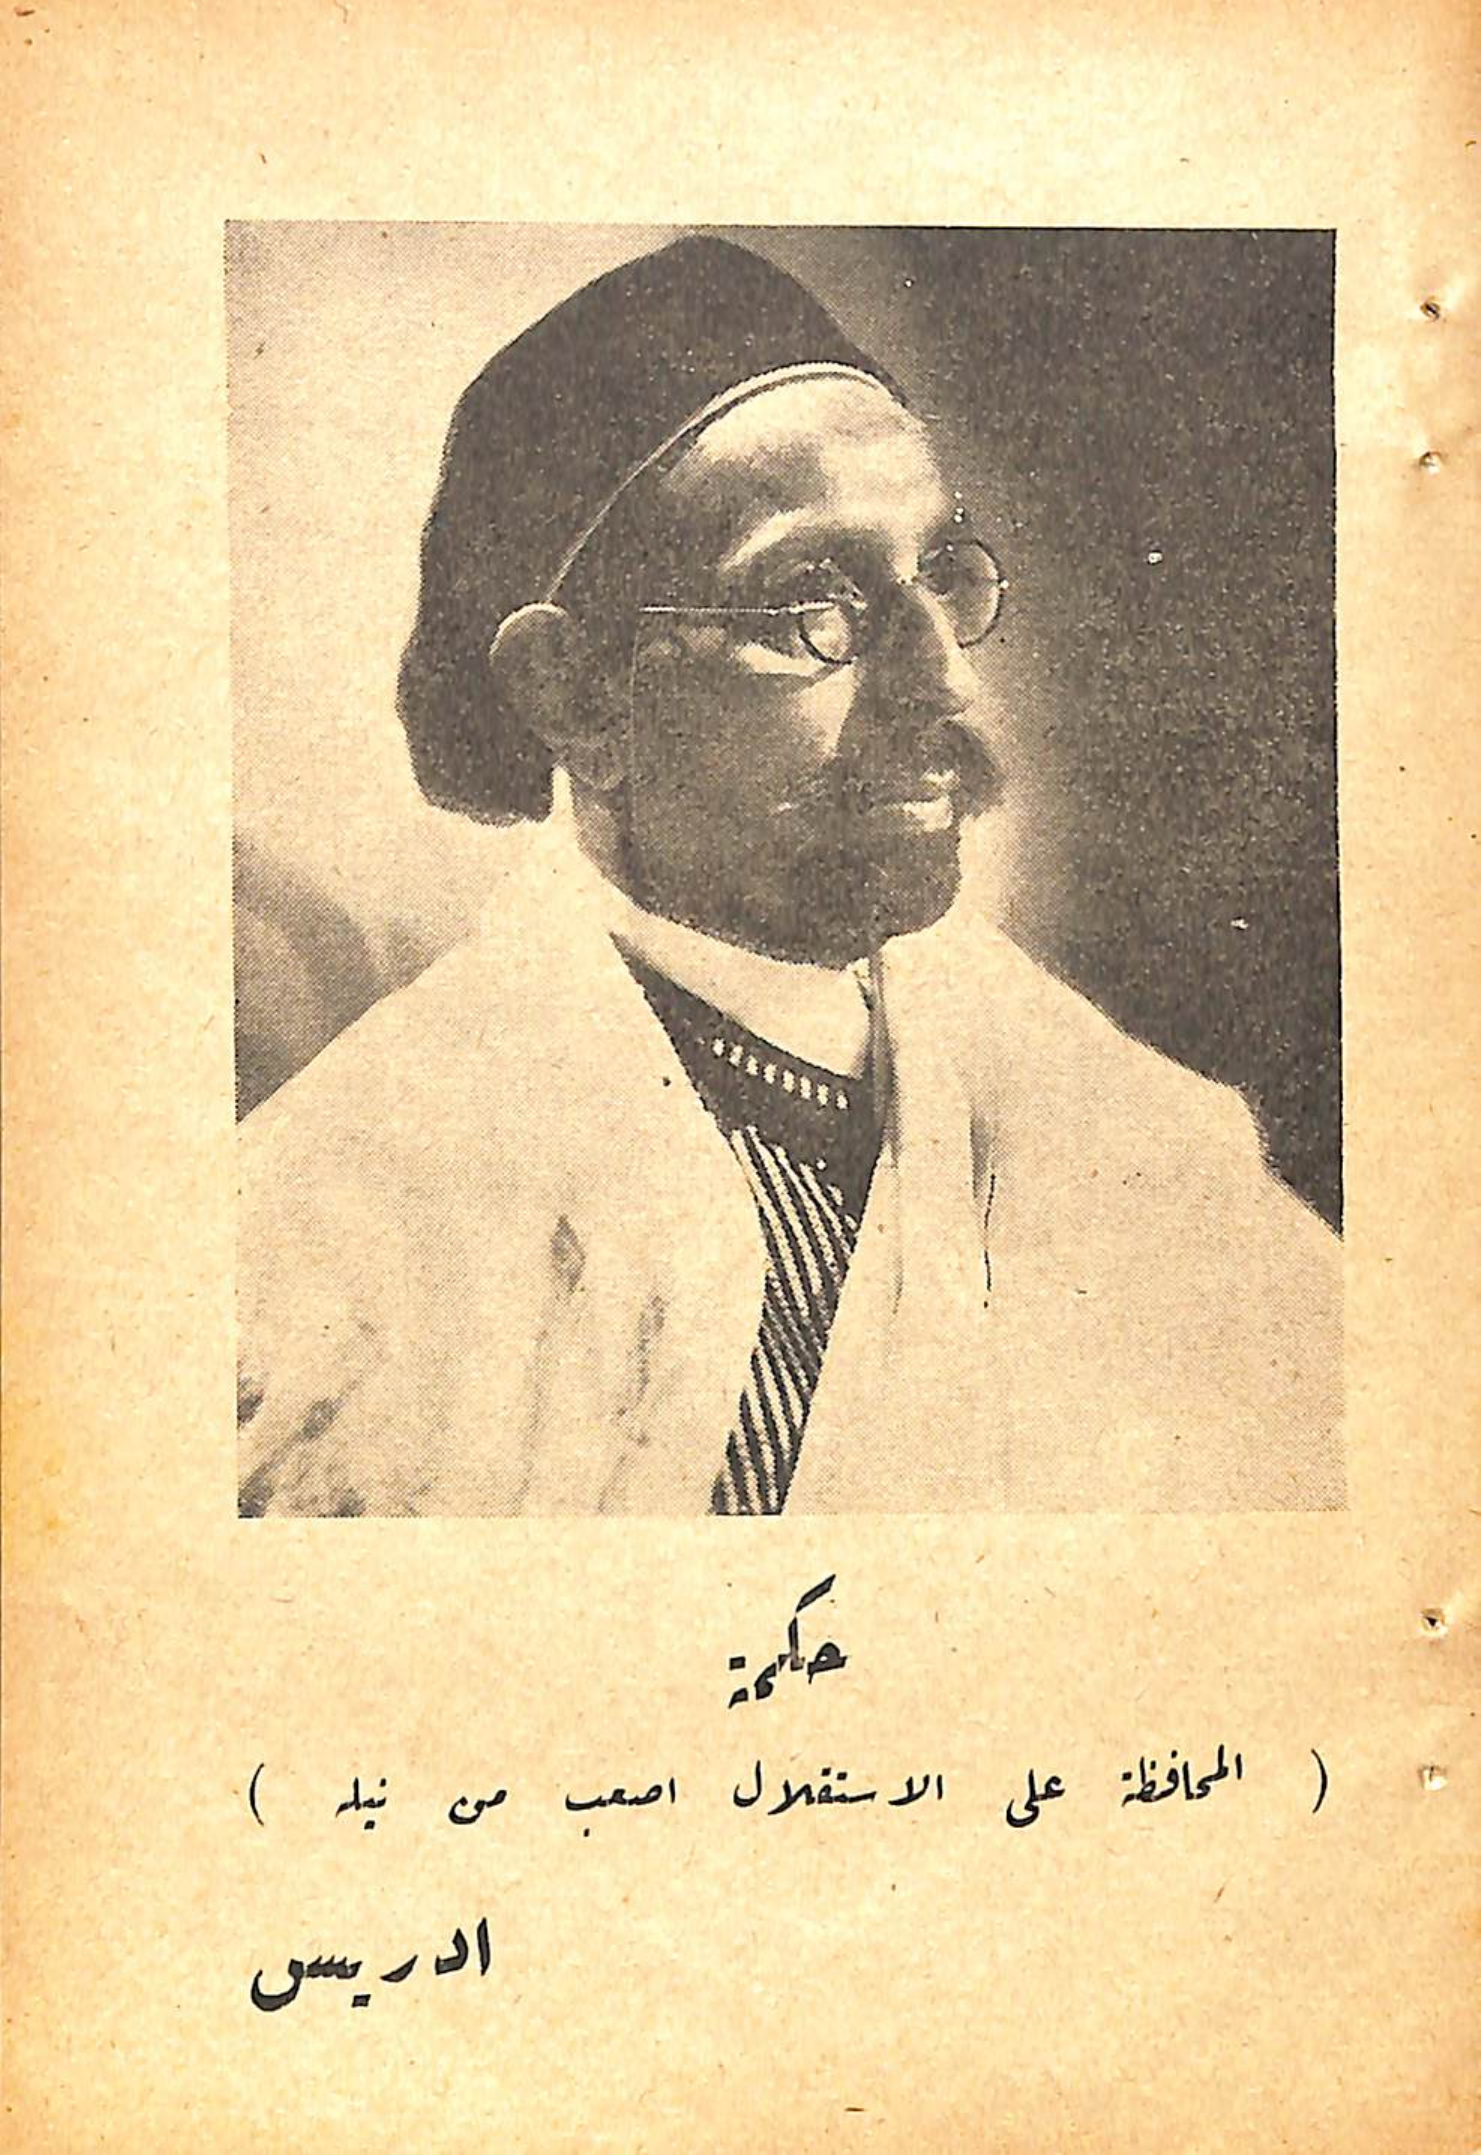 حكمة
( المحافظة على الاستقلال اصعب من نيله )
ادريس